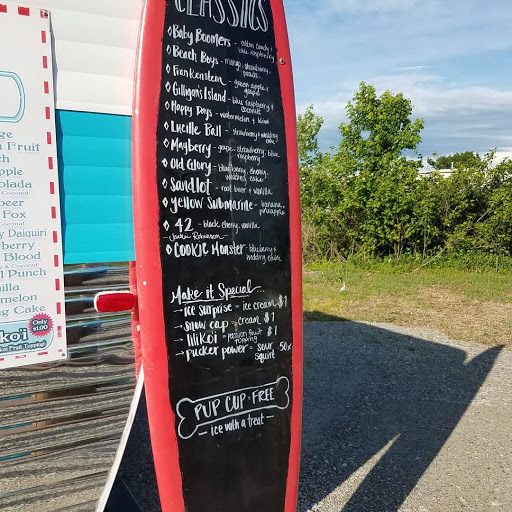 CLASSICS
◊ Baby Boomers - cotton candy + blue raspberry
◊ Beach Boys - mango, strawberry, peach
◊ Frankenstein - green apple + grape
◊ Gilligan's Island - blue raspberry + coconut
◊ Happy Days - watermelon + kiwi
◊ Lucille Ball - strawberry + wedding cake
◊ Mayberry - grape, strawberry, blue raspberry
◊ Old Glory - blueberry, cherry, wedding cake
◊ Sandlot - root beer + vanilla
◊ Yellow Submarine - banana, pineapple
◊ 42 - black cherry, vanilla
- Jackie Robinson -
◊ Cookie Monster - blueberry + wedding cake
Make it Special...
→ ice surprise - ice cream $1
→ snow cap - cream $1
→ lilikoi - passion fruit topping $1
→ pucker power - sour squirt .50¢
PUP CUP • FREE
- ice with a treat -
Fruit
apple
olada
Coconut
beer
Fox
Coconut
y Daiquiri
berry
Blood
& Coconut
l Punch
nilla
melon
ng Cake
koi
Only $1.00
on Fruit Topping!